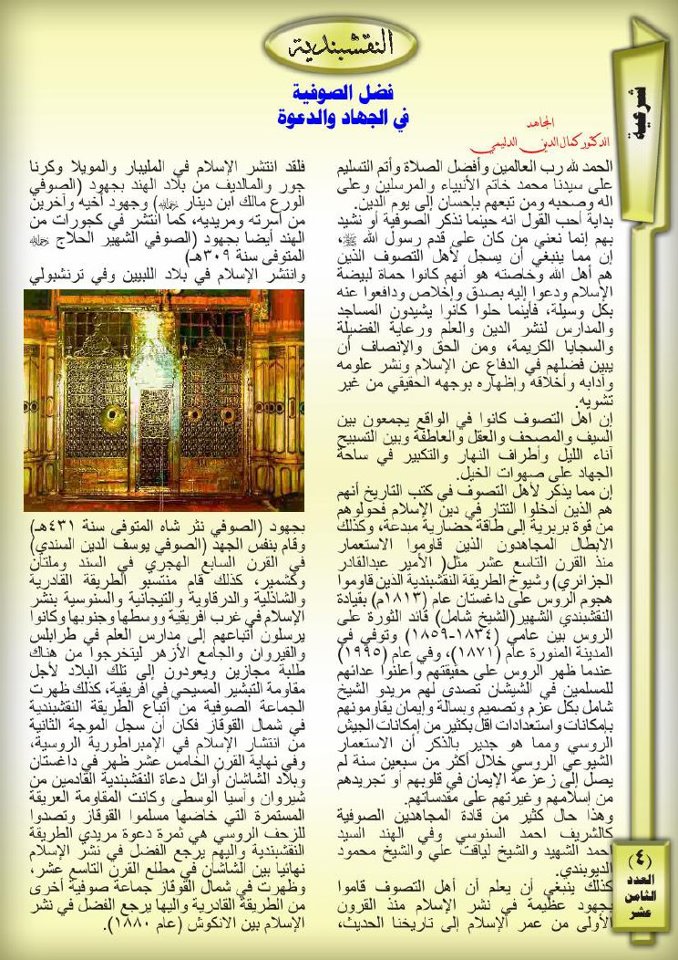 النقشبندية
شرعية
فضل الصوفية
في الجهاد والدعوة
المجاهد
الدكتور كمال الدين الدليمي
الحمد لله رب العالمين وأفضل الصلاة وأتم التسليم
على سيدنا محمد خاتم الأنبياء والمرسلين وعلى
اله وصحبه ومن تبعهم بإحسان إلى يوم الدين.
بداية أحب القول انه حينما نذكر الصوفية أو نشيد
بهم إنما نعني من كان على قدم رسول الله ﷺ،
إن مما ينبغي أن يسجل لأهل التصوف الذين
هم أهل الله وخاصته هو أنهم كانوا حماة لبيضة
الإسلام ودعوا إليه بصدق وإخلاص ودافعوا عنه
بكل وسيلة، فأينما حلوا كانوا يشيدون المساجد
والمدارس لنشر الدين والعلم ورعاية الفضيلة
والسجايا الكريمة، ومن الحق والإنصاف أن
يبين فضلهم في الدفاع عن الإسلام ونشر علومه
وآدابه وأخلاقه وإظهاره بوجهه الحقيقي من غير
تشويه.
إن اهل التصوف كانوا في الواقع يجمعون بين
السيف والمصحف والعقل والعاطفة وبين التسبيح
آناء الليل وأطراف النهار والتكبير في ساحة
الجهاد على صهوات الخيل.
إن مما يذكر لأهل التصوف في كتب التاريخ أنهم
هم الذين أدخلوا التتار في دين الإسلام فحولوهم
من قوة بربرية إلى طاقة حضارية مبدعة، وكذلك
الابطال المجاهدون الذين قاوموا الاستعمار
منذ القرن التاسع عشر مثل( الأمير عبدالقادر
الجزائري) وشيوخ الطريقة النقشبندية الذين قاوموا
هجوم الروس على داغستان عام (١٨١٣م) بقيادة
النقشبندي الشهير(الشيخ شامل) قائد الثورة على
الروس بين عامي (١٨٣٤-١٨٥٩) وتوفي في
المدينة المنورة عام (١٨٧١)، وفي عام (١٩٩٥)
عندما ظهر الروس على حقيقتهم وأعلنوا عدائهم
للمسلمين في الشيشان تصدى لهم مريدو الشيخ
شامل بكل عزم وتصميم وبسالة وإيمان يقاومونهم
بإمكانات واستعدادات اقل بكثير من إمكانات الجيش
الروسي ومما هو جدير بالذكر أن الاستعمار
الشيوعي الروسي خلال أكثر من سبعين سنة لم
يصل إلى زعزعة الإيمان في قلوبهم أو تجريدهم
من إسلامهم وغيرتهم على مقدساتهم.
وهذا حال كثير من قادة المجاهدين الصوفية
كالشريف احمد السنوسي وفي الهند السيد
احمد الشهيد والشيخ لياقت علي والشيخ محمود
الديوبندي.
كذلك ينبغي أن يعلم أن أهل التصوف قاموا
بجهود عظيمة في نشر الإسلام منذ القرون
الأولى من عمر الإسلام إلى تاريخنا الحديث،
فلقد انتشر الإسلام في المليبار والمويلا وكرنا
جور والمالديف من بلاد الهند بجهود (الصوفي
الورع مالك ابن دينار) وجهود أخيه وآخرين
من أسرته ومريديه، كما انتشر في كجورات من
الهند أيضا بجهود (الصوفي الشهير الحلاج
المتوفى سنة ٣٠٩هـ)
وانتشر الإسلام في بلاد اللبيين وفي ترنشبولي
بجهود (الصوفي نثر شاه المتوفى سنة ٤٣١هـ)
وقام بنفس الجهد (الصوفي يوسف الدين السندي)
في القرن السابع الهجري في السند وملتان
وكشمير، كذلك قام منتسبو الطريقة القادرية
والشاذلية والدرقاوية والتيجانية والسنوسية بنشر
الإسلام في غرب افريقية ووسطها وجنوبها وكانوا
يرسلون أتباعهم إلى مدارس العلم في طرابلس
والقيروان والجامع الأزهر ليتخرجوا من هناك
طلبة مجازين ويعودون إلى تلك البلاد لأجل
مقاومة التبشير المسيحي في افريقية، كذلك ظهرت
الجماعة الصوفية من أتباع الطريقة النقشبندية
في شمال القوقاز فكان أن سجل الموجة الثانية
من انتشار الإسلام في الإمبراطورية الروسية،
وفي نهاية القرن الخامس عشر ظهر في داغستان
وبلاد الشاشان أوائل دعاة النقشبندية القادمين من
شيروان وآسيا الوسطى وكانت المقاومة العريقة
المستمرة التي خاضها مسلموا القوقاز وتصدوا
للزحف الروسي هي ثمرة دعوة مريدي الطريقة
النقشبندية واليهم يرجع الفضل في نشر الإسلام
نهائيا بين الشاشان في مطلع القرن التاسع عشر،
وظهرت في شمال القوقاز جماعة صوفية أخرى
من الطريقة القادرية واليها يرجع الفضل في نشر
الإسلام بين الانكوش (عام ١٨٨٠).
(٤)
العدد
الثامن
عشر